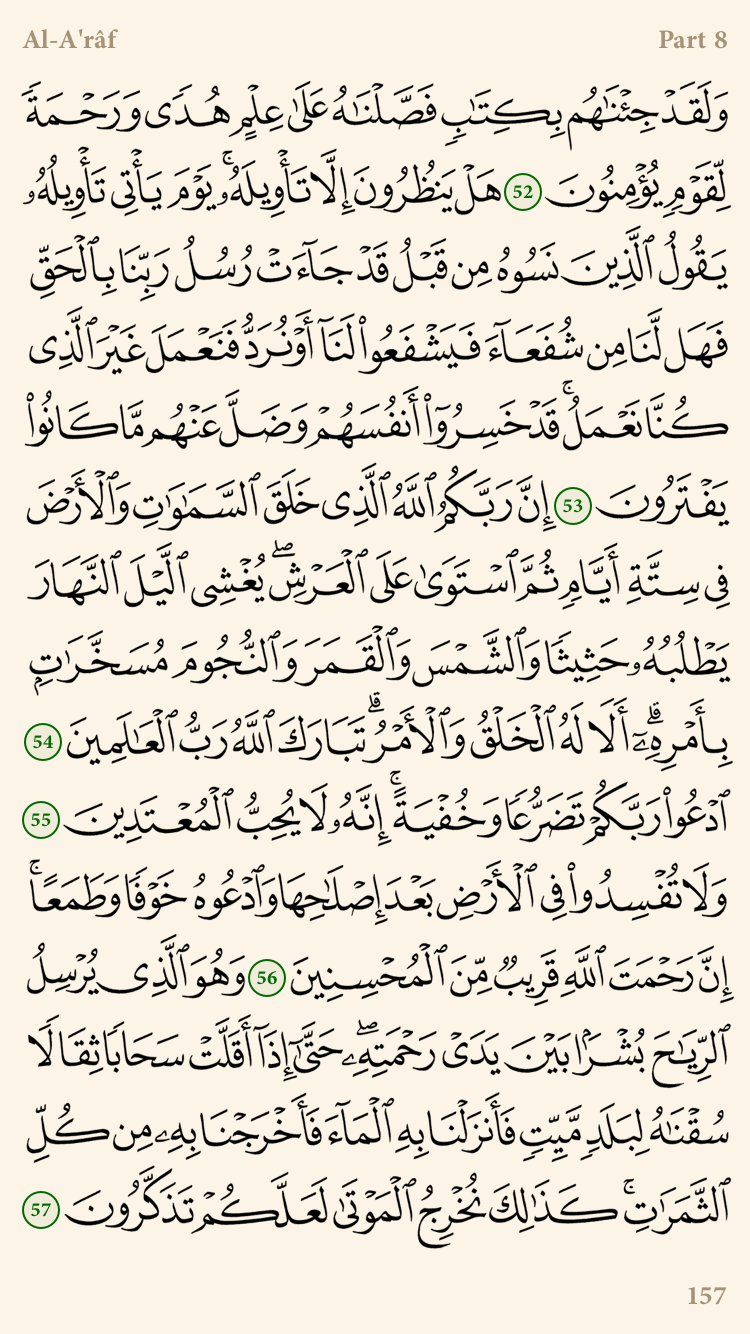 Al-A'râf Part 8
وَلَقَدْ جِئْنَٰهُم بِكِتَٰبٍ فَصَّلْنَٰهُ عَلَىٰ عِلْمٍ هُدًى وَرَحْمَةً
لِّقَوْمٍ يُؤْمِنُونَ 52 هَلْ يَنظُرُونَ إِلَّا تَأْوِيلَهُۥ ۚ يَوْمَ يَأْتِى تَأْوِيلُهُۥ
يَقُولُ ٱلَّذِينَ نَسُوهُ مِن قَبْلُ قَدْ جَآءَتْ رُسُلُ رَبِّنَا بِٱلْحَقِّ
فَهَل لَّنَا مِن شُفَعَآءَ فَيَشْفَعُوا۟ لَنَآ أَوْ نُرَدُّ فَنَعْمَلَ غَيْرَ ٱلَّذِى
كُنَّا نَعْمَلُ ۚ قَدْ خَسِرُوٓا۟ أَنفُسَهُمْ وَضَلَّ عَنْهُم مَّا كَانُوا۟
يَفْتَرُونَ 53 إِنَّ رَبَّكُمُ ٱللَّهُ ٱلَّذِى خَلَقَ ٱلسَّمَٰوَٰتِ وَٱلْأَرْضَ
فِى سِتَّةِ أَيَّامٍ ثُمَّ ٱسْتَوَىٰ عَلَى ٱلْعَرْشِ ۖ يُغْشِى ٱلَّيْلَ ٱلنَّهَارَ
يَطْلُبُهُۥ حَثِيثًا وَٱلشَّمْسَ وَٱلْقَمَرَ وَٱلنُّجُومَ مُسَخَّرَٰتٍۭ
بِأَمْرِهِۦٓ ۗ أَلَا لَهُ ٱلْخَلْقُ وَٱلْأَمْرُ ۗ تَبَارَكَ ٱللَّهُ رَبُّ ٱلْعَٰلَمِينَ 54
ٱدْعُوا۟ رَبَّكُمْ تَضَرُّعًا وَخُفْيَةً ۚ إِنَّهُۥ لَا يُحِبُّ ٱلْمُعْتَدِينَ 55
وَلَا تُفْسِدُوا۟ فِى ٱلْأَرْضِ بَعْدَ إِصْلَٰحِهَا وَٱدْعُوهُ خَوْفًا وَطَمَعًا ۚ
إِنَّ رَحْمَتَ ٱللَّهِ قَرِيبٌ مِّنَ ٱلْمُحْسِنِينَ 56 وَهُوَ ٱلَّذِى يُرْسِلُ
ٱلرِّيَٰحَ بُشْرًۢا بَيْنَ يَدَىْ رَحْمَتِهِۦ ۖ حَتَّىٰٓ إِذَآ أَقَلَّتْ سَحَابًا ثِقَالًا
سُقْنَٰهُ لِبَلَدٍ مَّيِّتٍ فَأَنزَلْنَا بِهِ ٱلْمَآءَ فَأَخْرَجْنَا بِهِۦ مِن كُلِّ
ٱلثَّمَرَٰتِ ۚ كَذَٰلِكَ نُخْرِجُ ٱلْمَوْتَىٰ لَعَلَّكُمْ تَذَكَّرُونَ 57
157